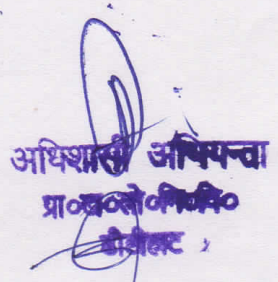 अधिशासी अभियन्ता
प्रा०ख०लो०नि०वि०
डीडीहाट